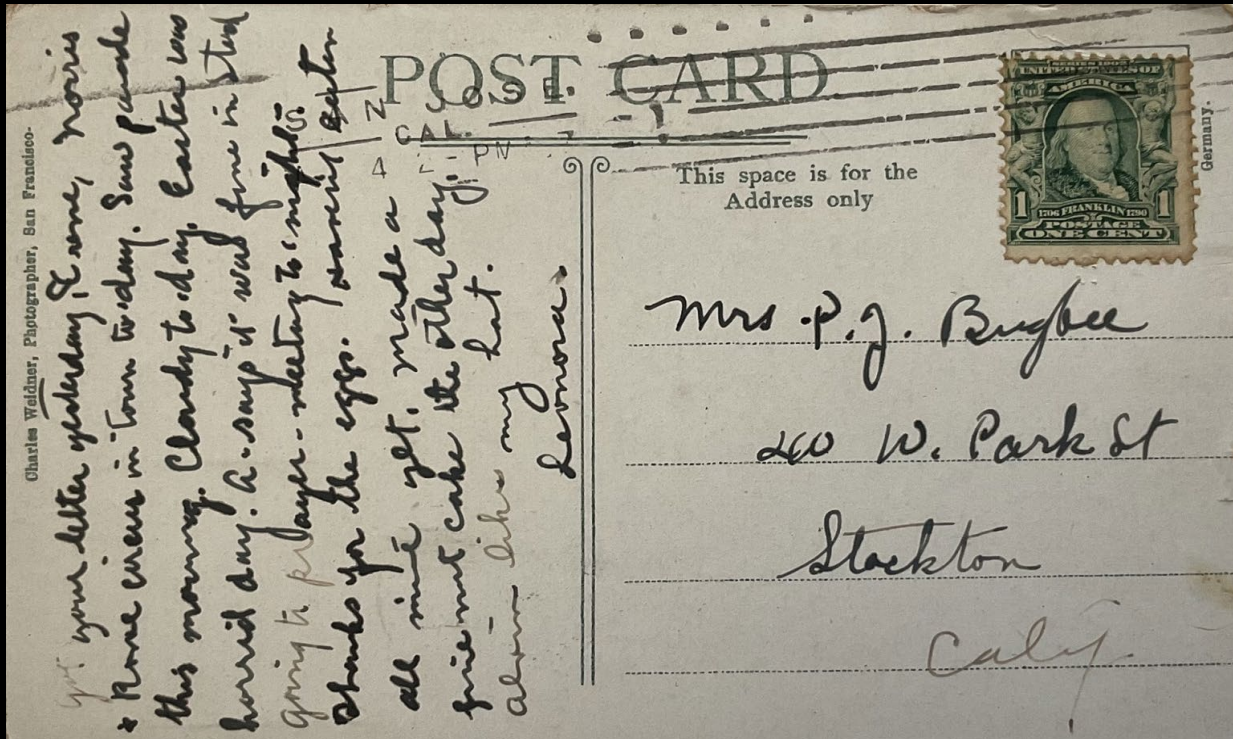 POST CARD
SAN JOSE.
CAL.
4 - PM
Charles Weidner, Photographer, San Francisco-
got your letter yesterday, Norris
& Rowe circus in town to-day. Saw parade
this morning. Cloudy to-day, Easter was
horrid day. A- says it was fine in Stud
going to prayer-meeting to-night.
Thanks for the eggs. Haven't eaten
all mine yet. Made a
fine nut cake the other day.
Alvin likes my hat.
Leonora.
This space is for the
Address only
SERIES 1902
UNITED STATES OF
AMERICA
1 1
1706 FRANKLIN 1790
POSTAGE
ONE CENT
Germany.
Mrs. P. J. Bugbee
260 W. Park St
Stockton
Calif.